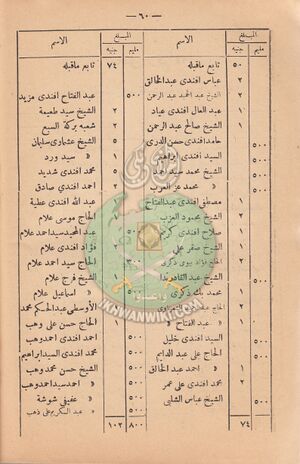 — ٦٠ —
المبلغ الاسم
مليم جنيه
٥٠ تابع ماقبله
٢ عباس افندى عبدالخالق
٢ الشيخ عبد الحميد عبد الرحمن
١ عبد العال افندى عياد
١ الشيخ صالح عبد الرحمن
٥٠٠ حامد افندى حسن الدرى
السيد افندى ابراهيم
٥٠٠ الشيخ محمد سيد احمد
٥٠٠ » محمد عز العرب
١ مصطفى افندى عبدالفتاح
الشيخ محمود العزب
صلاح افندى
الشيخ صقر على
الشيخ عبد القادر
محمد بك ذكرى
» عبد الفتاح »
٥٠٠ السيد افندى خليل
٥٠٠ الحاج على عبد الدايم
» احمد عبد الخالق
٢ محمد افندى على عمر
٥٠٠ الشيخ عباس الشلبى
٧٤
المبلغ الاسم
مليم جنيه
٧٤ تابع ماقبله
عبد الفتاح افندى مزيد
٢ الشيخ سيد طعيمة
٢ شعبه بركة السبع
٥ الشيخ عشماوى سليمانى
١ » سيد ورد
١ محمد افندى شديد
٢ احمد افندى صادق
عبد الله افندى عطية
١ الحاج موسى علام
٥٠٠ عبد المجيد سيد احمد علام
٢ فؤاد افندى علام
٣٠٠ الحاج سيد احمد علام
الشيخ فرج علام
» اسماعيل علام
الأوسطى عبد الحكم محمد
١ الحاج حسن على وهب
٥٠٠ احمد افندى احمد وهب
٥٠٠ محمد افندى السيد ابراهيم
٥٠٠ الشيخ حسن محمد وهب
٥٠٠ » احمد سيد احمد وهب
٥٠٠ » عفيفى شوشة
٥٠٠ » عبد السكريم على وهب
٨٠٠ ١٠٢
IKHWANWIKI.COM